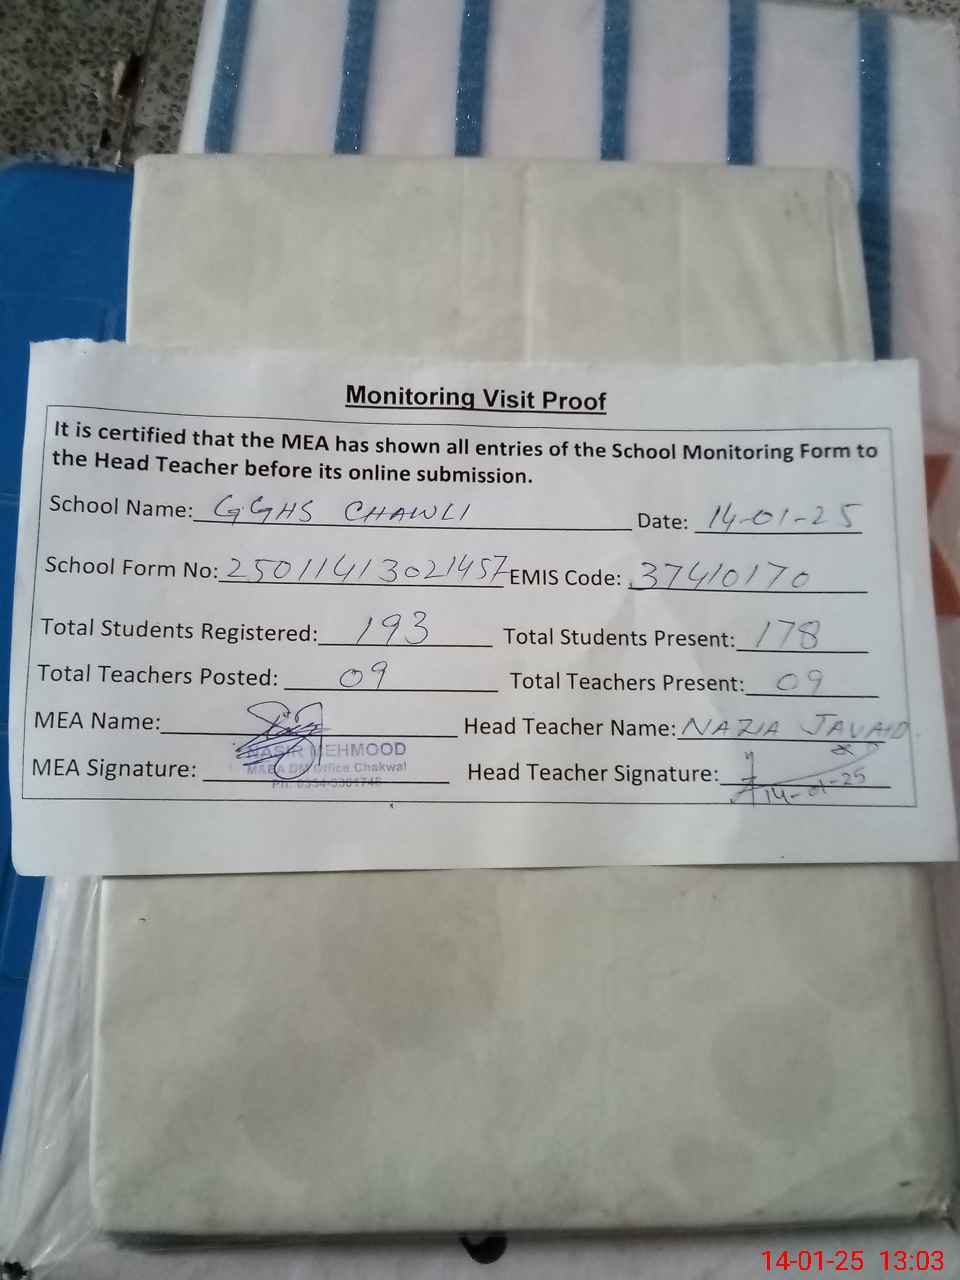 Monitoring Visit Proof
It is certified that the MEA has shown all entries of the School Monitoring Form to
the Head Teacher before its online submission.
School Name: GGHS CHAWLI Date: 14-01-25
School Form No: 25011413021457 EMIS Code: 37410170
Total Students Registered: 193 Total Students Present: 178
Total Teachers Posted: 09 Total Teachers Present: 09
MEA Name: Head Teacher Name: NAZIA JAVAID
NASIR MEHMOOD
MEA Signature: Head Teacher Signature:
Office Chakwal
14-01-25
14-01-25 13:03